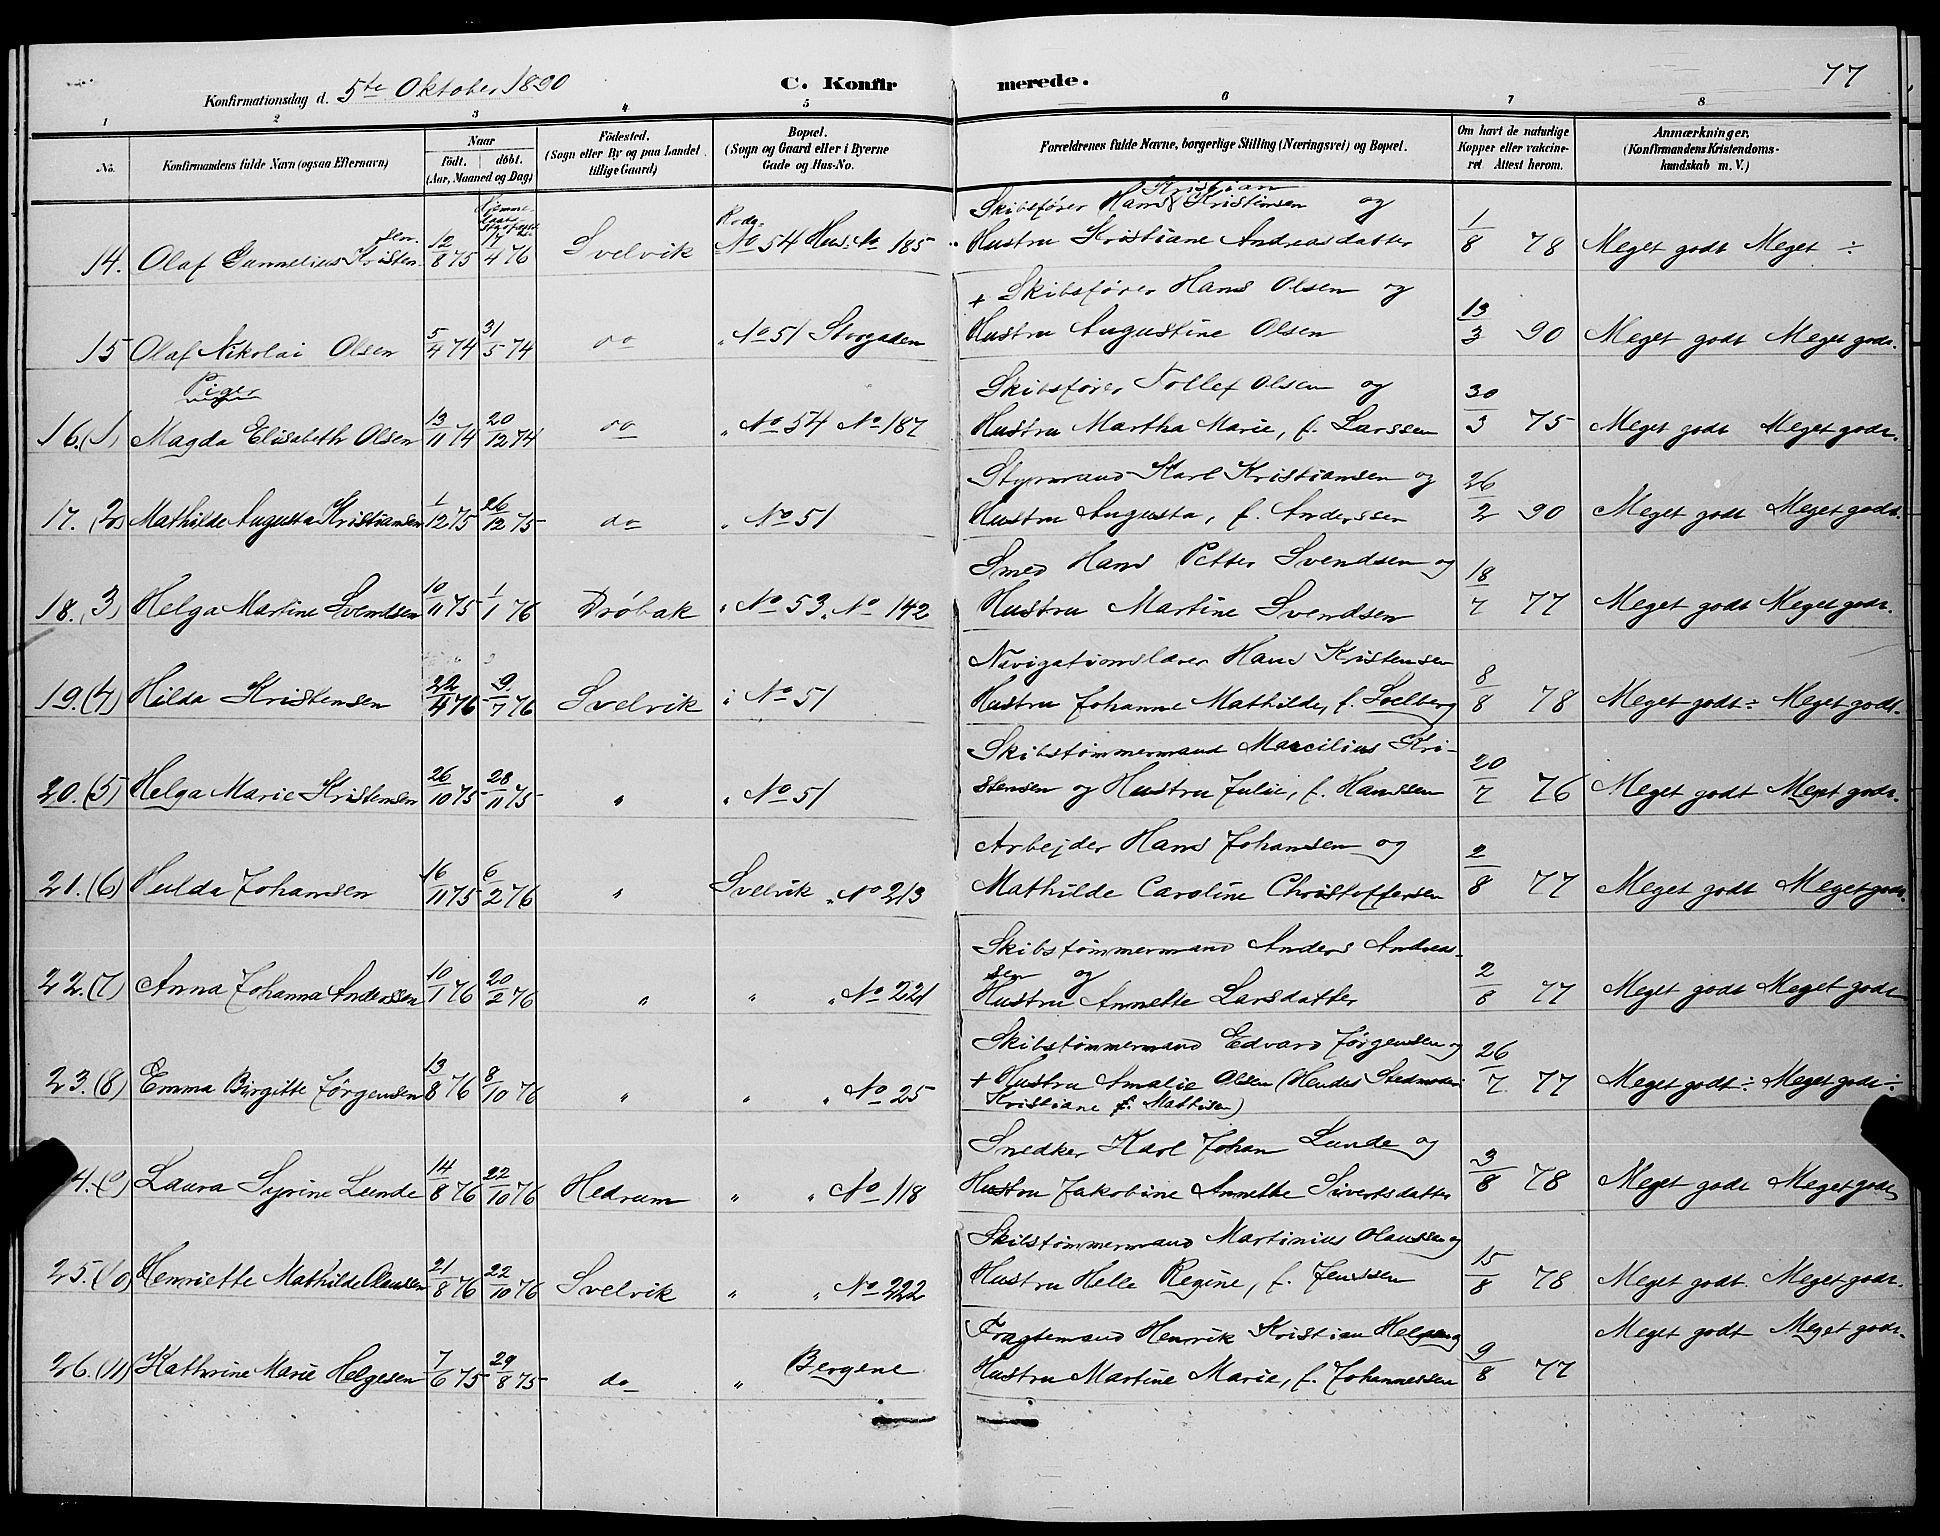 77
Konfirmationsdag d. 5te Oktober 1890 C. Konfirmerede.
1 2 3 4 5 6 7 8
No. Konfirmandens fulde Navn (ogsaa Efternavn) Naar født. døbt. (Aar, Maaned og Dag) Fødested. (Sogn eller By og paa Landet tillige Gaard) Bopæl. (Sogn og Gaard eller i Byerne Gade og Hus-No. Forældrenes fulde Navne, borgerlige Stilling (Næringsvei) og Bopæl. Om havt de naturlige Kopper eller vaccineret Attest herom. Anmærkninger. (Konfirmandens Kristendomskundskab m. V.)
Hjemme Kristian
Rode Skibsfører Hans Kristensen og
14. Olaf Kristen 12/8 75 17/4 76 Svelvik No 54 Hus No 185 Hustru Kristiane Andreasdatter 1/8 78 Meget godt Meget ÷
+ Skibsfører Hans Olsen og
15 Olaf Nikolai Olsen 5/4 74 31/5 74 do " No 51 Storgaden Hustru Augustine Olsen 13/3 90 Meget godt Meget godt.
Piger
Skibsfører Tollef Olsen og
16. (1) Magda Elisabeth Olsen 13/11 74 20/12 74 do " No 54 No 187 Hustru Martha Marie, f. Larssen 30/3 75 Meget godt Meget godt.
Styrmand Karl Kristiansen og
17. (2) Mathilde Augusta Kristiansen 1/12 75 26/12 75 do " No 51 Hustru Augusta, f. Anderssen 26/2 90 Meget godt Meget godt.
Smed Hans Petter Svendsen og
18. (3) Helga Martine Svendsen 10/11 75 1/1 76 Drøbak " No 53. No 142 Hustru Martine Svendsen 18/7 77 Meget godt Meget godt.
Navigationslærer Hans Kristensen
19. (4) Hilda Kristensen 22/4 76 9/7 76 Svelvik " No 51 Hustru Johanne Mathilde, f. Solberg 8/8 78 Meget godt ÷ Meget godt.
Skibstømmermand Marcilius Kri-
20. (5) Helga Marie Kristensen 26/10 75 28/11 75 " " No 51 stensen og Hustru Julie, f. Hanssen 20/7 76 Meget godt Meget godt.
Arbejder Hans Johansen og
21. (6) Hulda Johansen 16/11 75 6/2 76 " Svelvik " No 213 Mathilde Caroline Christoffersen 2/8 77 Meget godt Meget godt.
Skibstømmermand Anders Andreas-
sen og
22. (7) Anna Johanna Anderssen 10/1 76 20/2 76 " " " No 221 Hustru Annette Larsdatter 2/8 77 Meget godt Meget godt
Skibstømmermand Edvard Jørgensen og
23. (8) Emma Birgitte Jørgensen 13/8 76 8/10 76 " " " No 25 + Hustru Amalie Olsen (Hendes Stedmoder 26/7 77 Meget godt ÷ Meget godt ÷
Kristiane f. Mathisen)
Snedker Karl Johan Lunde og
4. (9) Laura Syrine Lunde 14/8 76 22/10 76 Hedrum " " No 118 Hustru Jakobine Annette Sivertsdatter 3/8 78 Meget godt Meget godt
Skibstømmermand Martinius Olaussen og
25. (10) Henriette Mathilde Olaussen 21/8 76 22/10 76 Svelvik " " No 222 Hustru Helle Regine, f. Jenssen 15/8 78 Meget godt. Meget godt.
Fragtemand Henrik Kristian Helgesen og Meget godt Meget godt.
26. (11) Kathrine Marie Helgesen 7/6 75 29/8 75 do " Bergene Hustru Martine Marie, f. Johannessen 9/8 77